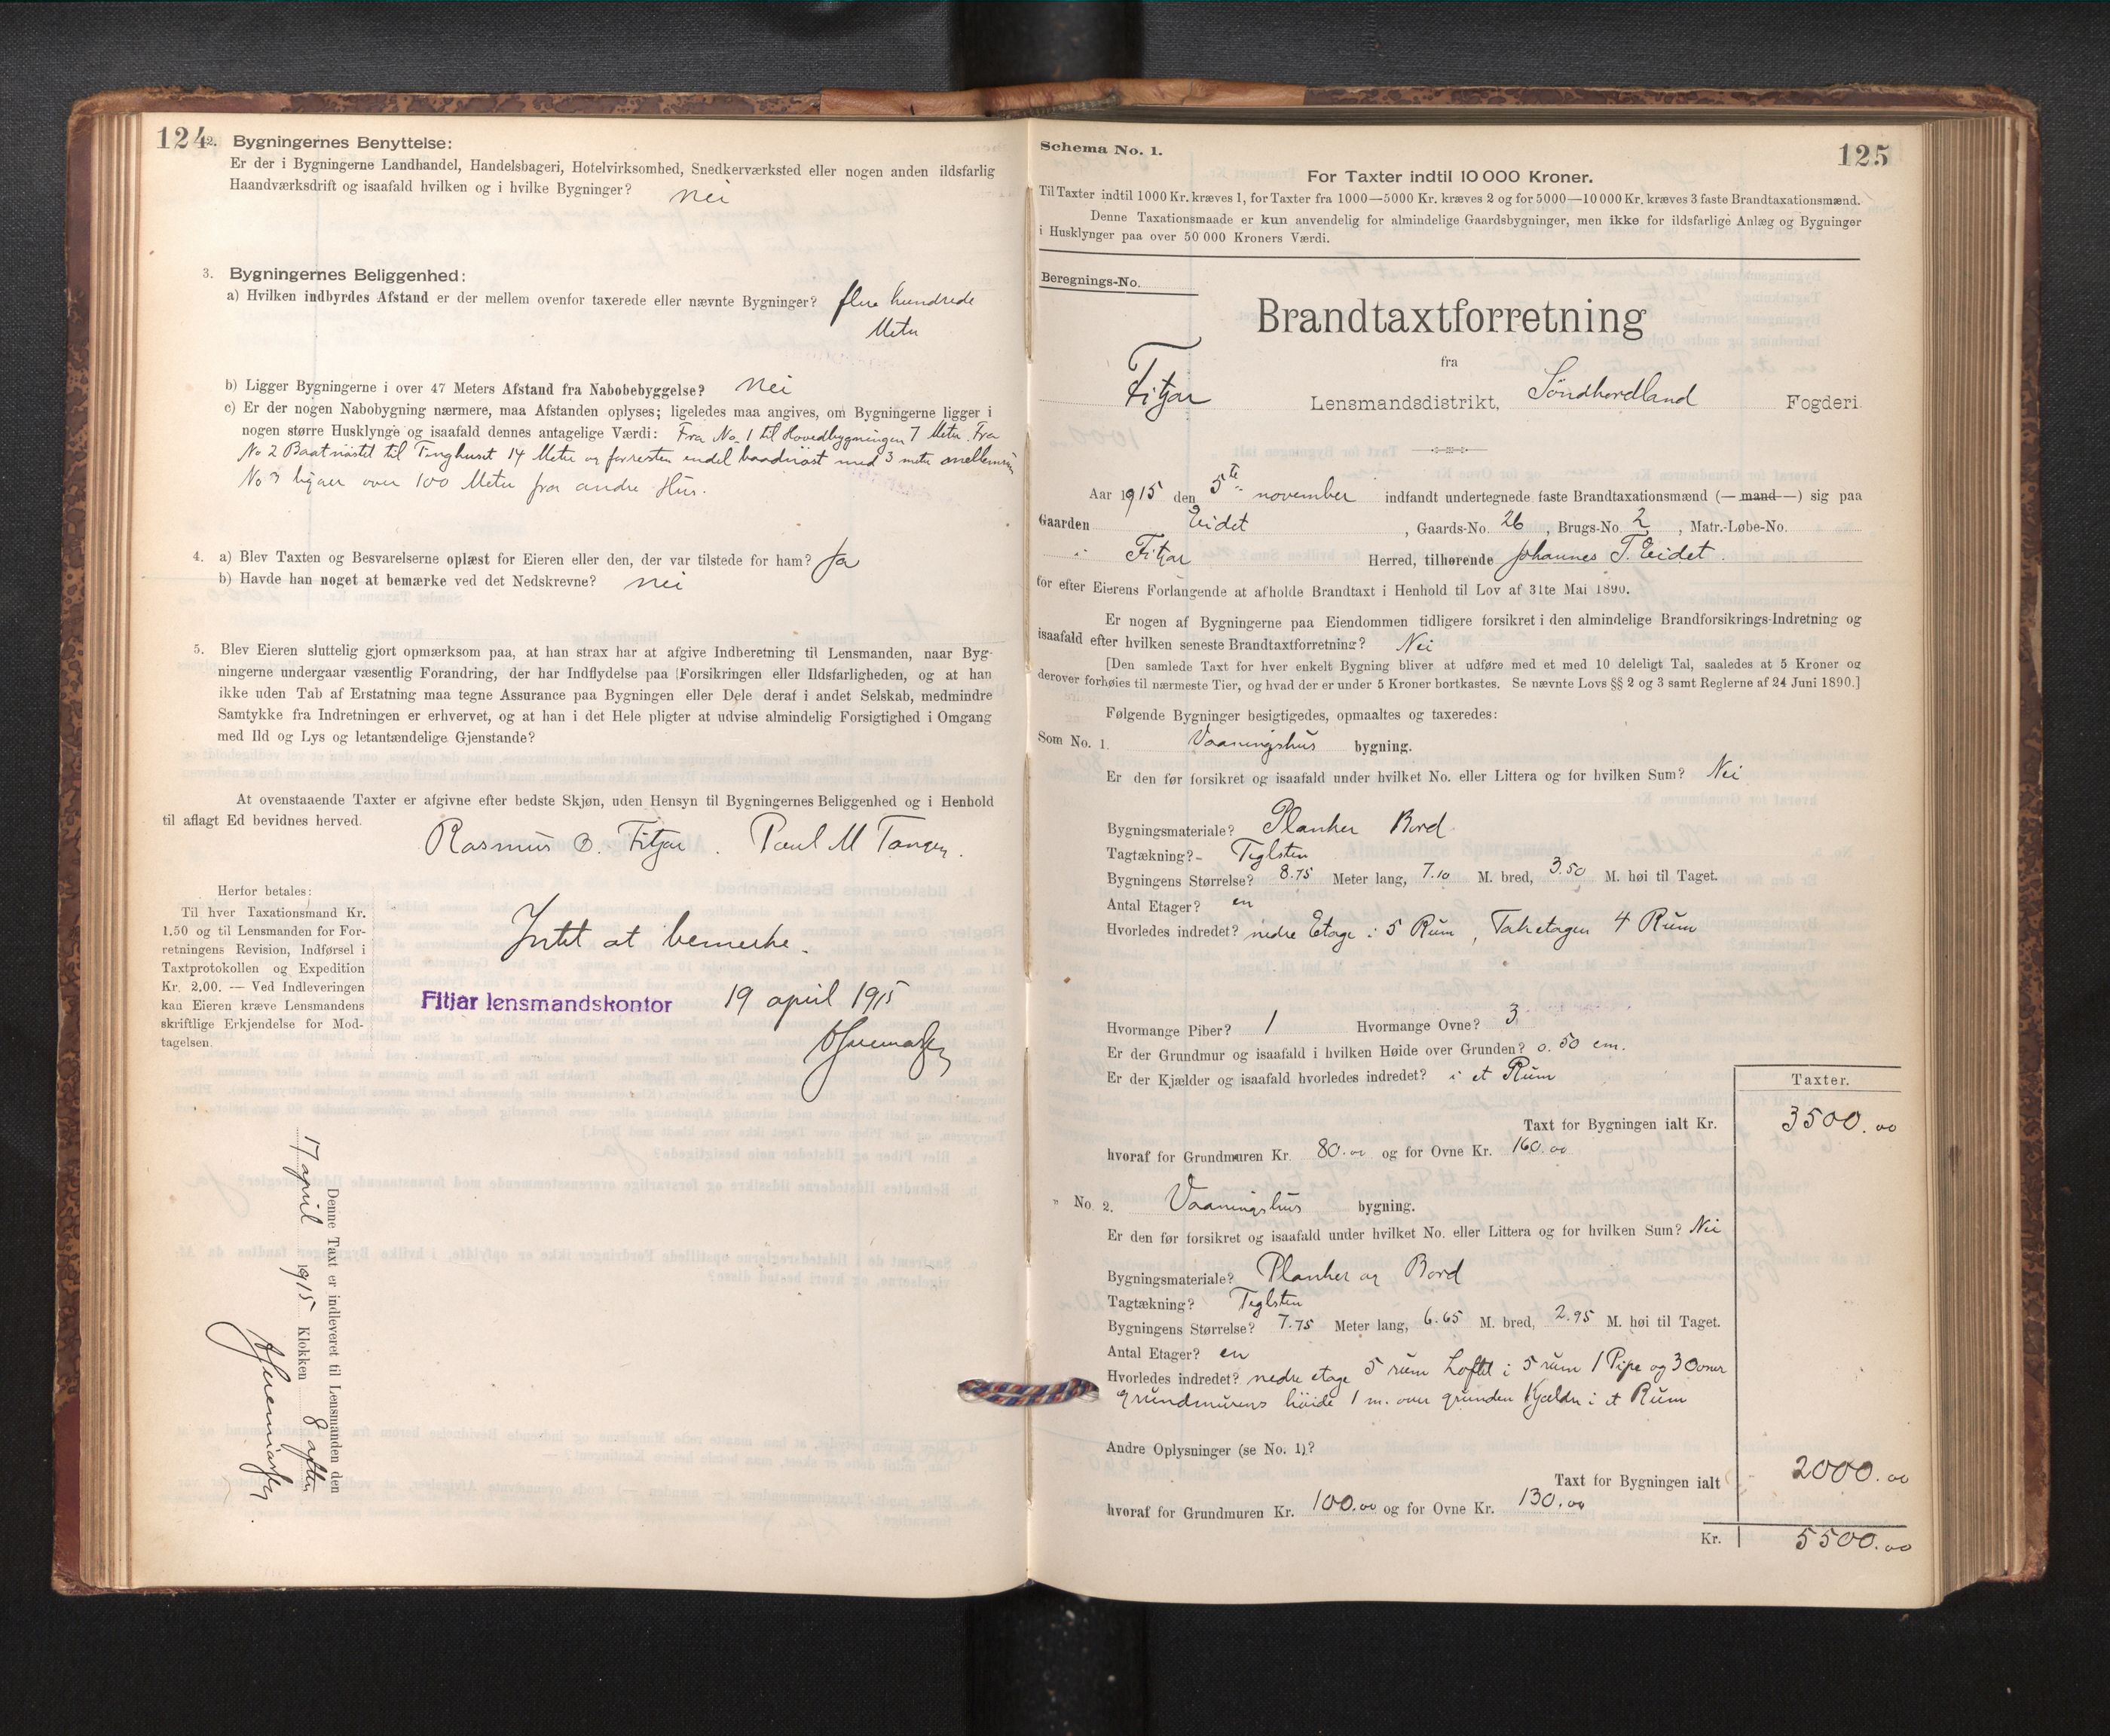 124
2. Bygningernes Benyttelse:
Er der i Bygningerne Landhandel, Handelsbageri, Hotelvirksomhed, Snedkerværksted eller nogen anden ildsfarlig
Haandværksdrift og isaafald hvilken og i hvilke Bygninger? nei
3. Bygningernes Beliggenhed:
a) Hvilken indbyrdes Afstand er der mellem ovenfor taxerede eller nævnte Bygninger? flere hundrede
Meter
b) Ligger Bygningerne i over 47 Meters Afstand fra Nabobebyggelse? nei
c) Er der nogen Nabobygning nærmere, maa Afstanden oplyses; ligeledes maa angives, om Bygningerne ligger i
nogen større Husklynge og isaafald dennes antagelige Værdi: Fra No 1 til Hovedbygningen 7 Meter. Fra
No 2 Baatnöstet til Tinghuset 14 Meter og forresten endel baadnöst med 3 meter mellemrum
No 3 ligger over 100 Meter fra andre Hus.
4. a) Blev Taxten og Besvarelserne oplæst for Eieren eller den, der var tilstede for ham? Ja
b) Havde han noget at bemærke ved det Nedskrevne? nei
5. Blev Eieren sluttelig gjort opmærksom paa, at han strax har at afgive Indberetning til Lensmanden, naar Byg-
ningerne undergaar væsentlig Forandring, der har Indflydelse paa Forsikringen eller Ildsfarligheden, og at han
ikke uden Tab af Erstatning maa tegne Assurance paa Bygningen eller Dele deraf i andet Selskab, medmindre
Samtykke fra Indretningen er erhvervet, og at han i det Hele pligter at udvise almindelig Forsigtighed i Omgang
med Ild og Lys og letantændelige Gjenstande?
At ovenstaaende Taxter er afgivne efter bedste Skjøn, uden Hensyn til Bygningernes Beliggenhed og i Henhold
til aflagt Ed bevidnes herved.
Rasmus B. Fitjar. Paul M Tangen.
Herfor betales:
Til hver Taxationsmand Kr.
1.50 og til Lensmanden for For-
retningens Revision, Indførsel i
Taxtprotokollen og Expedition
Kr. 2.00. — Ved Indleveringen
kan Eieren kræve Lensmandens
skriftlige Erkjendelse for Mod-
tagelsen.
Intet at bemerke.
Fitjar lensmandskontor 19 april 1915
Denne Taxt er indleveret til Lensmanden den
17 april 1915 Klokken 8 aften
125
Schema No. 1.
For Taxter indtil 10 000 Kroner.
Til Taxter indtil 1000 Kr. kræves 1, for Taxter fra 1000—5000 Kr. kræves 2 og for 5000—10 000 Kr. kræves 3 faste Brandtaxationsmænd.
Denne Taxationsmaade er kun anvendelig for almindelige Gaardsbygninger, men ikke for ildsfarlige Anlæg og Bygninger
i Husklynger paa over 50 000 Kroners Værdi.
Beregnings-No.
Brandtaxtforretning
fra
Fitjar Lensmandsdistrikt, Söndhordland Fogderi
Aar 1915 den 5te november indfandt undertegnede faste Brandtaxationsmænd (—mand—) sig paa
Gaarden Eidet, Gaards-No. 26, Brugs-No. 2, Matr.-Løbe-No.
i Fitjar Herred, tilhørende Johannes T. Eidet.
for efter Eierens Forlangende at afholde Brandtaxt i Henhold til Lov af 31te Mai 1890.
Er nogen af Bygningerne paa Eiendommen tidligere forsikret i den almindelige Brandforsikrings-Indretning og
isaafald efter hvilken seneste Brandtaxtforretning? Nei
[Den samlede Taxt for hver enkelt Bygning bliver at udføre med et med 10 deleligt Tal, saaledes at 5 Kroner og
derover forhøies til nærmeste Tier, og hvad der er under 5 Kroner bortkastes. Se nævnte Lovs §§ 2 og 3 samt Reglerne af 24 Juni 1890.]
Følgende Bygninger besigtigedes, opmaaltes og taxeredes:
Som No. 1. Vaaningshus bygning.
Er den før forsikret og isaafald under hvilket No. eller Littera og for hvilken Sum? Nei
Bygningsmateriale? Planker Bord
Tagtækning? Teglsten
Bygningens Størrelse? 8.75 Meter lang, 7.10 M. bred, 3.50 M. høi til Taget.
Antal Etager? en
Hvorledes indredet? nedre Etage i 5 Rum, Taketagen 4 Rum
Hvormange Piber? 1 Hvormange Ovne? 3
Er der Grundmur og isaafald i hvilken Høide over Grunden? 0.50 cm.
Er der Kjælder og isaafald hvorledes indredet? i et Rum
Taxter.
Taxt for Bygningen ialt Kr. 3500.00
hvoraf for Grundmuren Kr. 80.00 og for Ovne Kr. 160.00
" No. 2. Vaaningshus bygning.
Er den før forsikret og isaafald under hvilket No. eller Littera og for hvilken Sum? Nei
Bygningsmateriale? Planker og Bord
Tagtækning? Teglsten
Bygningens Størrelse? 7.75 Meter lang, 6.65 M. bred, 2.95 M. høi til Taget.
Antal Etager? en
Hvorledes indredet? nedre etage 5 rum Loftet i 5 rum 1 Pipe og 3 Ovner
grundmurens höide 1 m. over grunden Kjælder i et Rum
Andre Oplysninger (se No. 1)?
Taxt for Bygningen ialt 2000.00
hvoraf for Grundmuren Kr. 100.00 og for Ovne Kr. 130.00
Kr. 5500.00